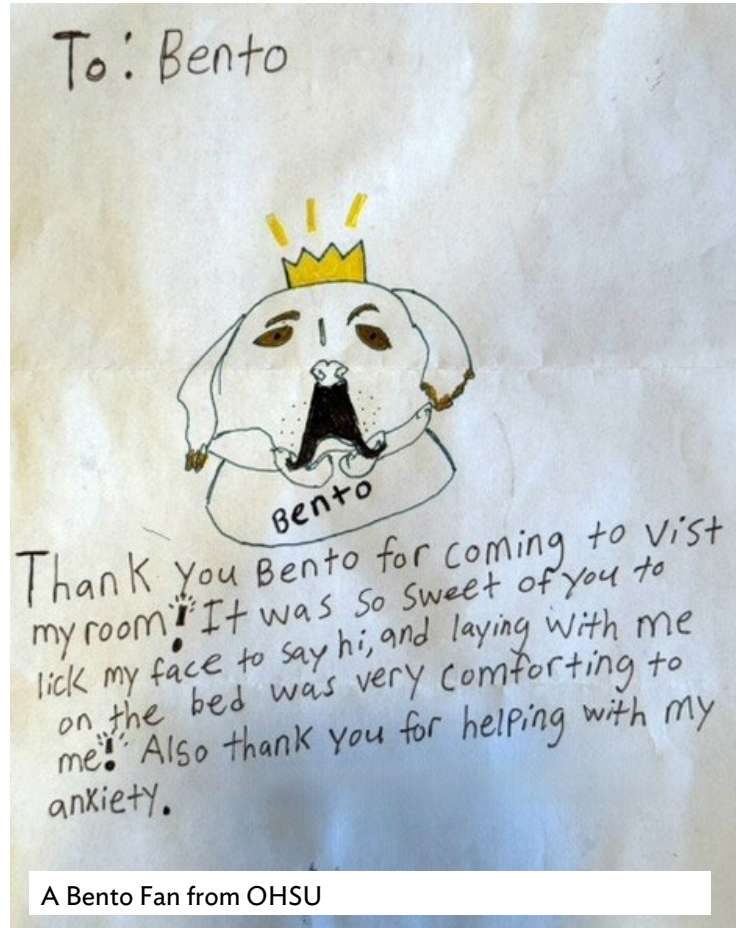 To: Bento
Bento
Thank you Bento for coming to vist
my room! It was so sweet of you to
lick my face to say hi, and laying with me
on the bed was very comforting to
me! Also thank you for helping with my
anxiety.
A Bento Fan from OHSU